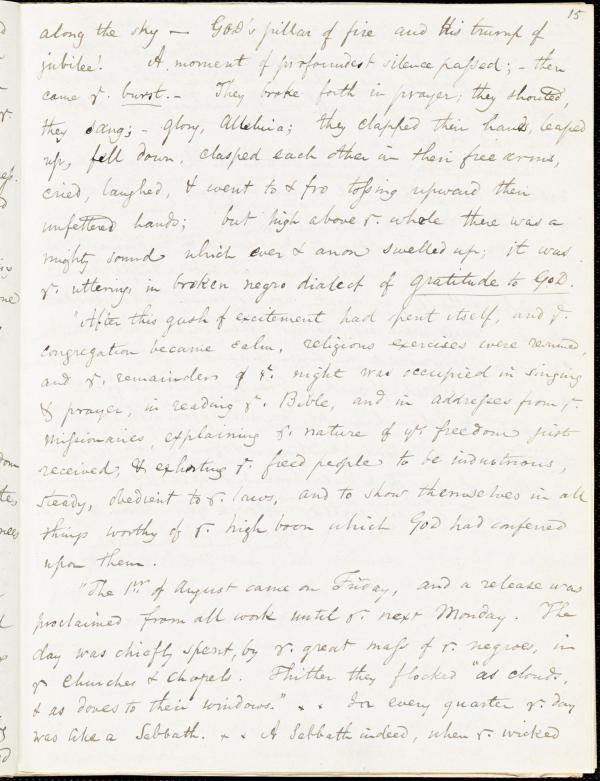 15
along the sky — GOD's pillar of fire and His trump of
jubilee! A moment of profoundest silence passed; – then
came yͤ. burst. – They broke forth in prayer; they shouted,
they sang; – glory, Alleluia; they clapped their hands, leaped
up, fell down, clasped each other in their free arms,
cried, laughed, & went to & fro tossing upward their
unfettered hands; but high above yͤ. whole there was a
mighty sound which ever & anon swelled up; it was
yͤ. uttering in broken negro dialect of gratitude to GOD.
"After this gush of excitement had spent itself, and yͤ.
congregation became calm, religious exercises were resumed,
and yͤ. remainders of yͤ. night was occupied in singing
& prayer, in reading yͤ. Bible, and in addresses from yͤ.
missionaries, explaining yͤ. nature of yͤ. freedom just
received, & exhorting yͤ. freed people to be industrious,
steady, obedient to yͤ. laws, and to show themselves in all
things worthy of yͤ. high boon which GOD had conferred
upon them.
"The 1st. of August came on Friday, and a release was
proclaimed from all work until yͤ. next Monday. The
day was chiefly spent, by yͤ. great mass of yͤ. negroes, in
yͤ Churches & Chapels. Thither they flocked "as clouds,
& as doves to their windows." × × For every quarter yͤ. day
was like a Sabbath. × × A Sabbath indeed, when yͤ. wicked